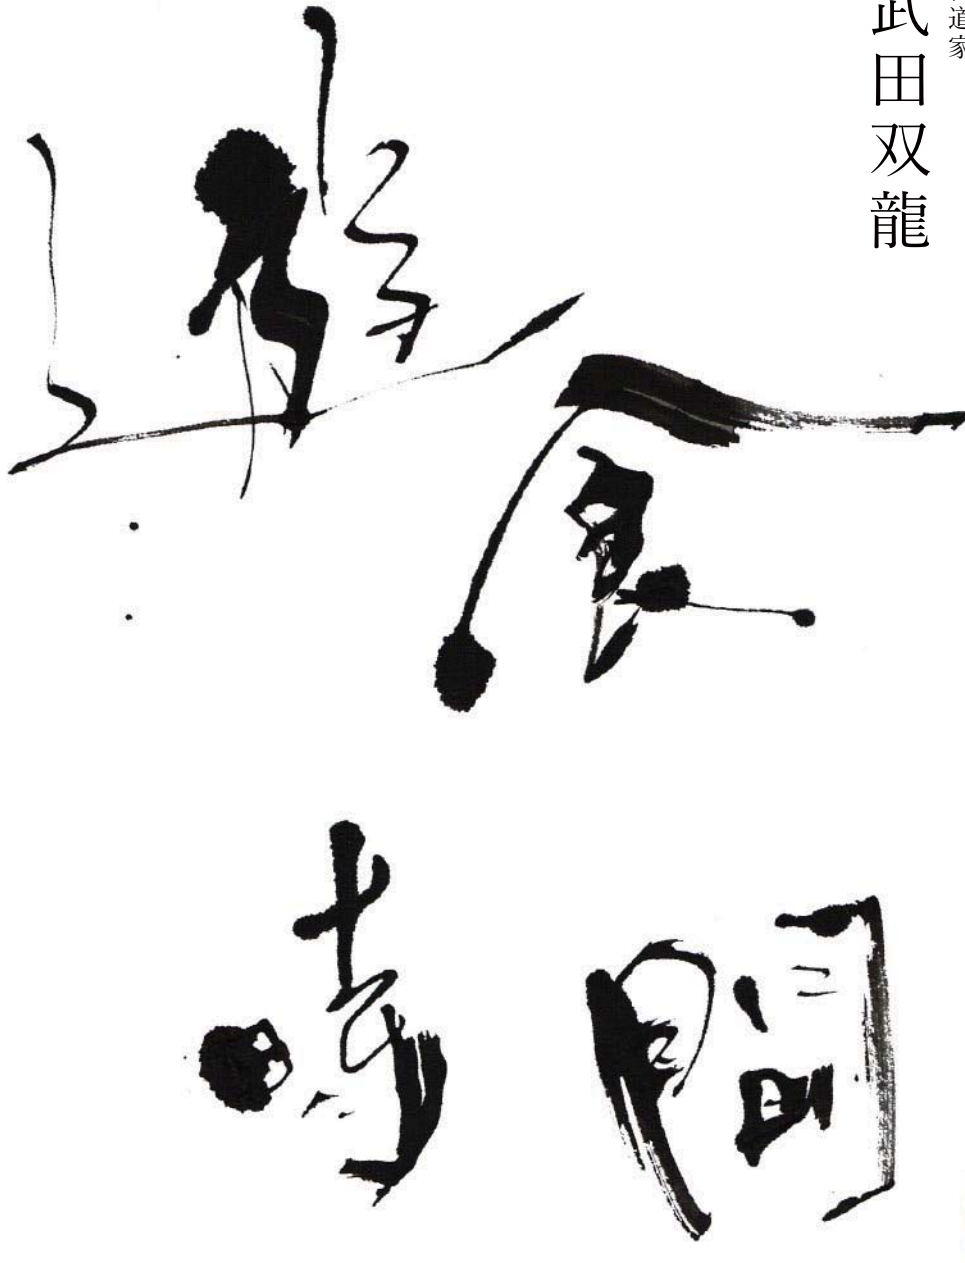 道家
武田双龍
遊食
時間